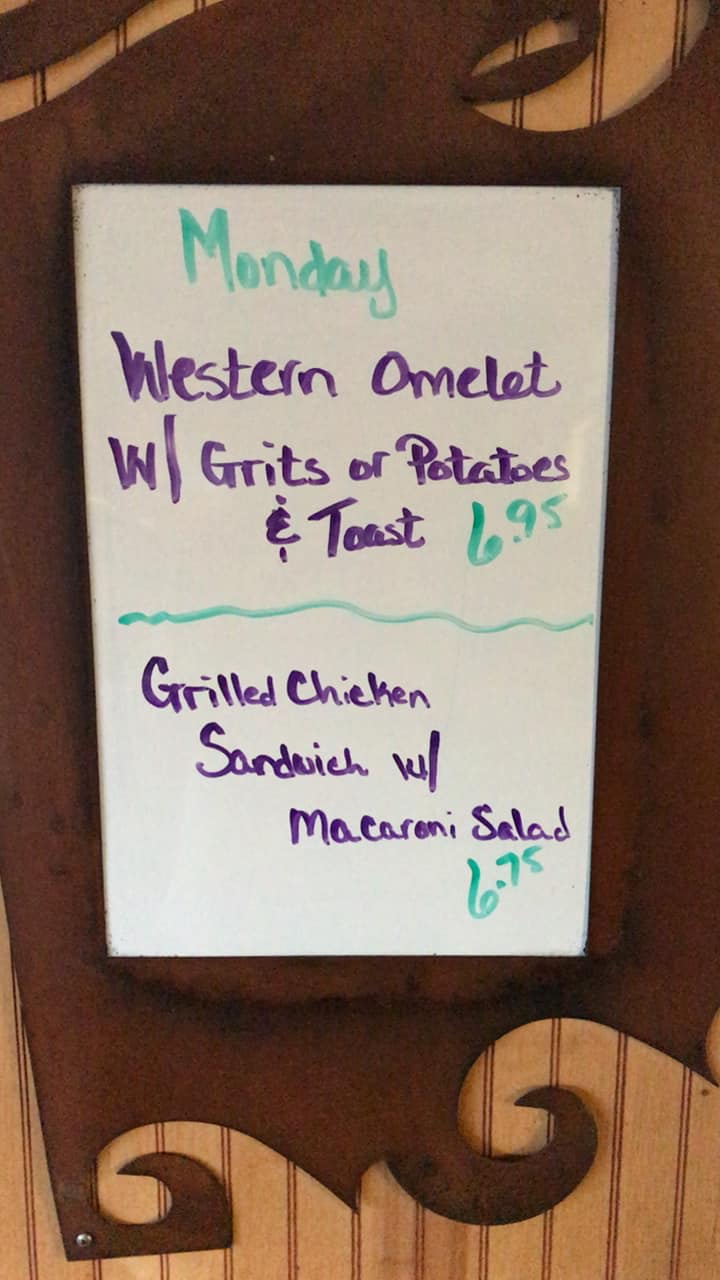 Monday
Western Omelet
W/ Grits or Potatoes
& Toast 6.95
Grilled Chicken
Sandwich w/
Macaroni Salad
6.75